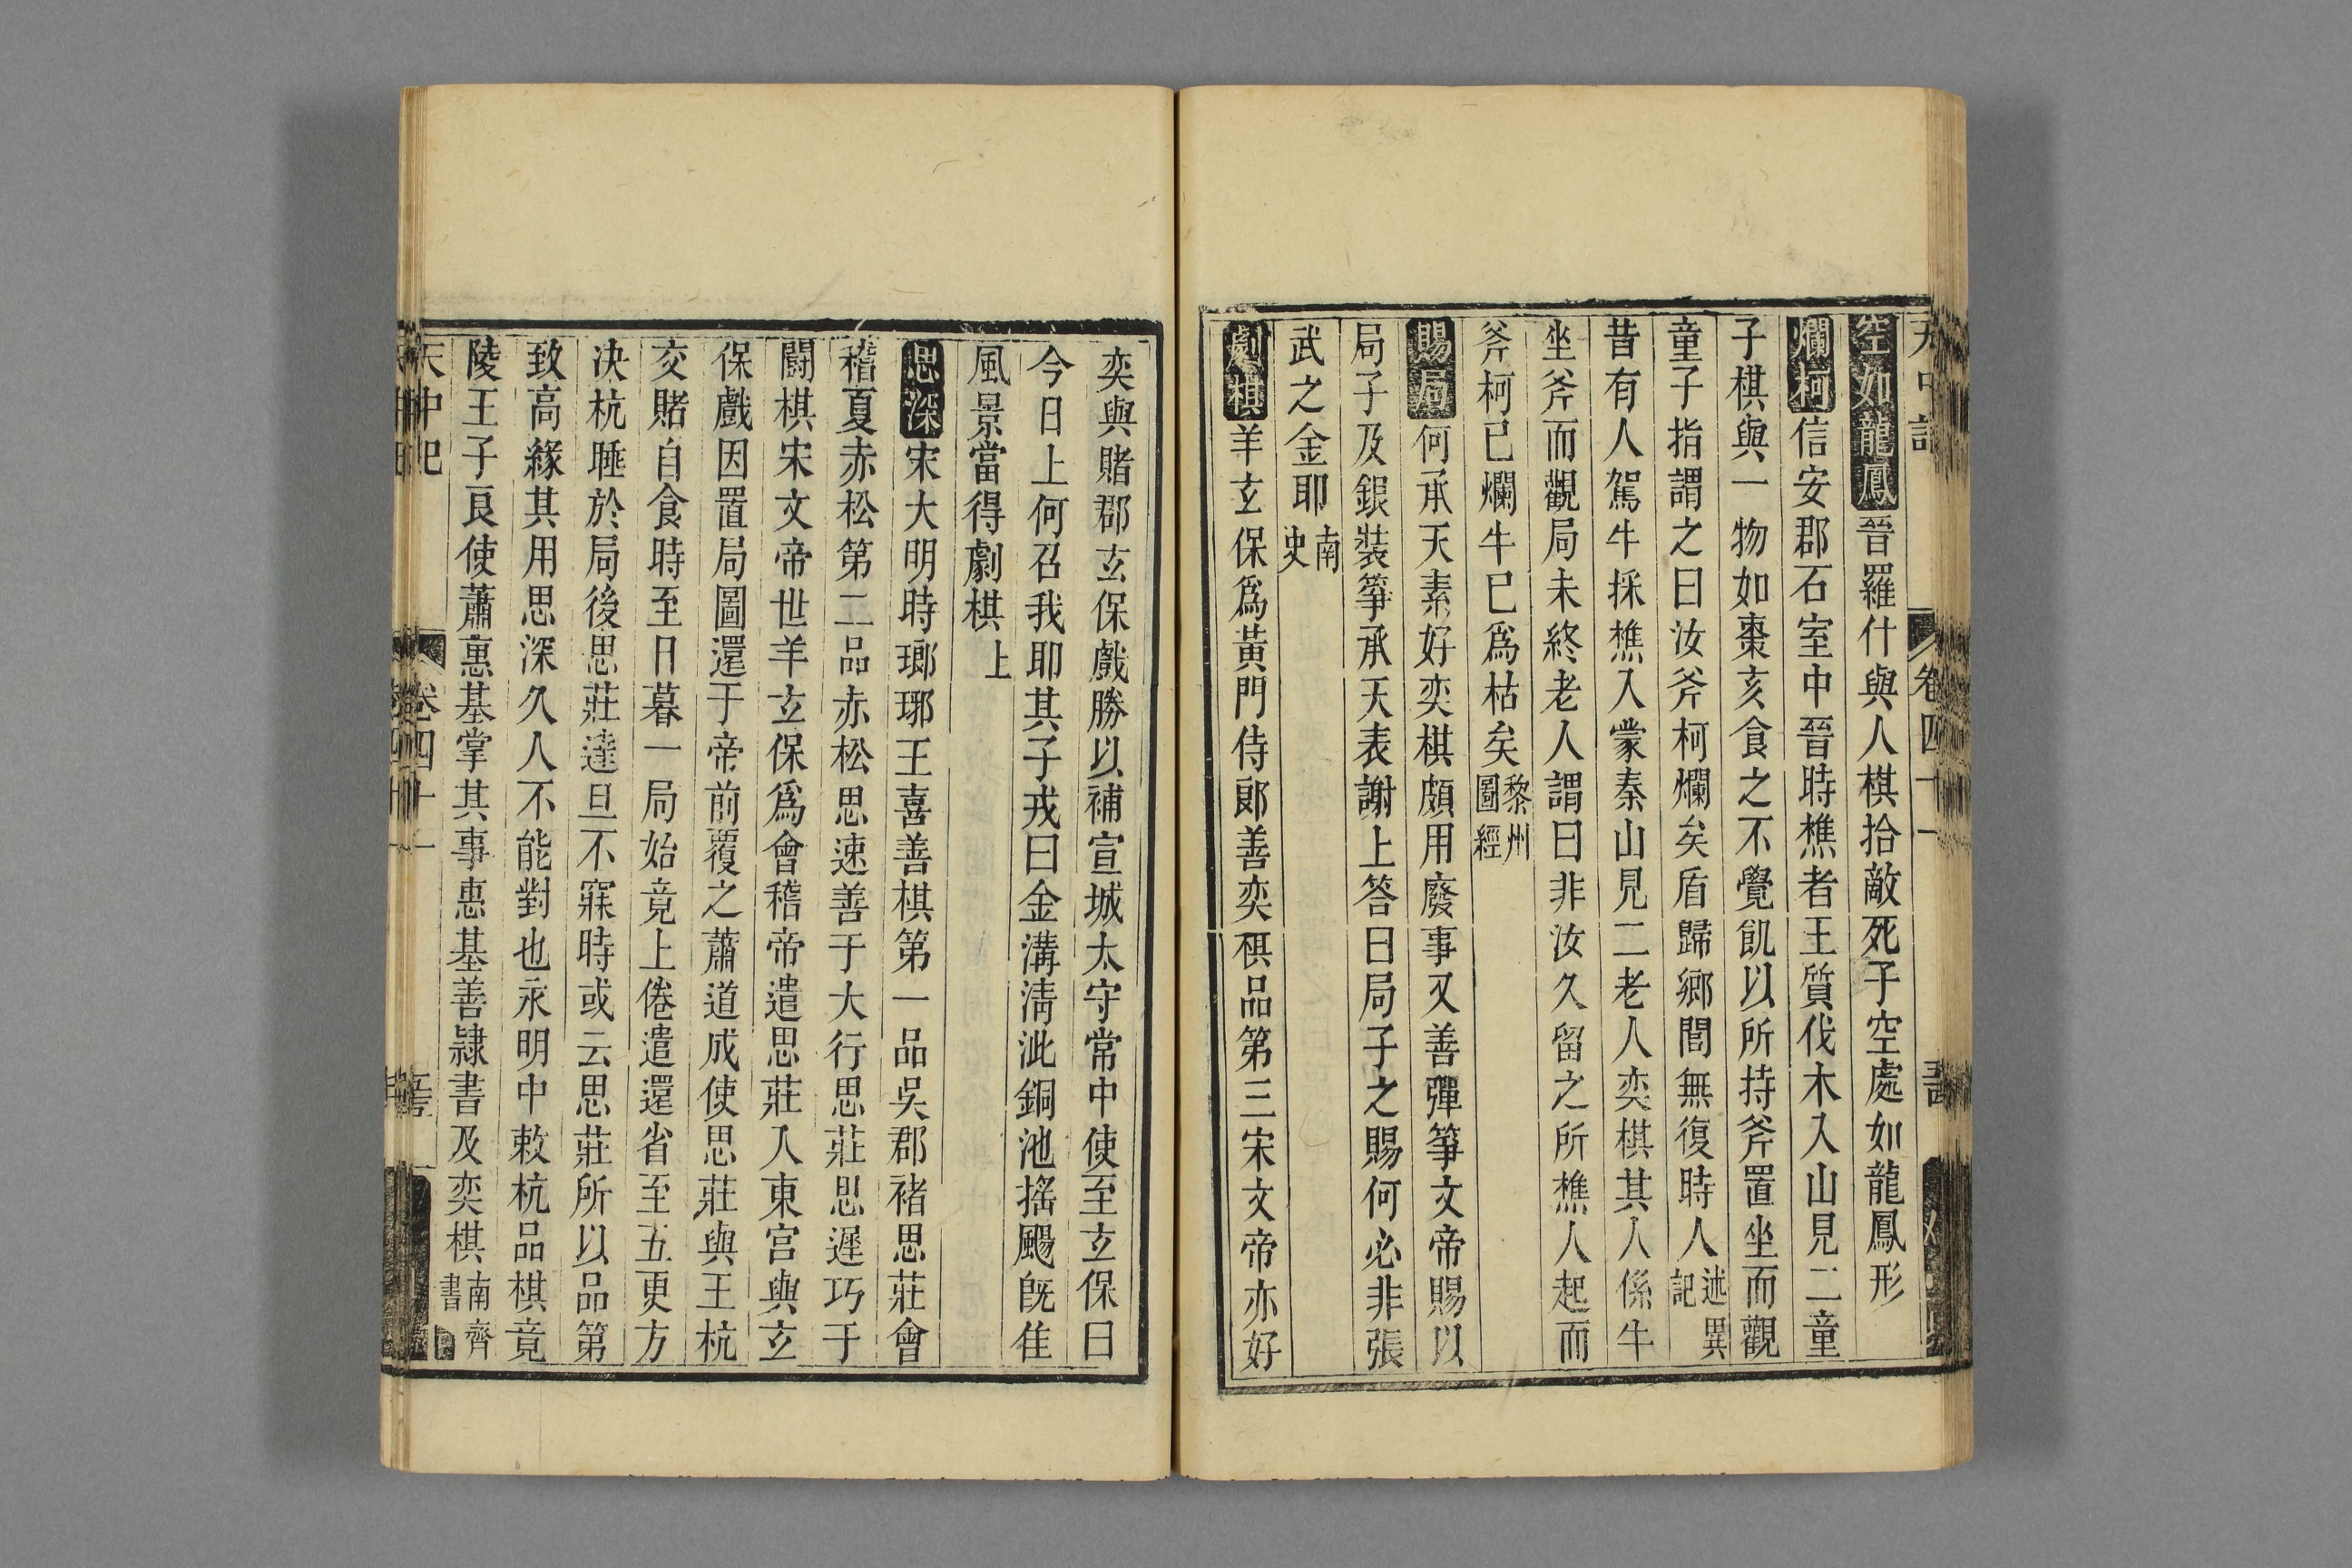 空如龍鳳晉羅什與人棋拾敵死子空處如龍鳳形
爛柯信安郡石室中晉時樵者王質伐木入山見二童
子棋與一物如棗亥食之不覺飢以所持斧置坐而觀
童子指謂之曰汝斧柯爛矣盾歸鄉閭無復時人述異記
昔有人駕牛採樵入蒙秦山見二老人奕棋其人係牛
坐斧而觀局未終老人謂曰非汝久留之所樵人起而
斧柯已爛牛巳爲枯矣黎州圖經
賜局何承天素好奕棋頗用廢事又善彈箏文帝賜以
局子及銀裝箏承天表謝上答曰局子之賜何必非張
武之金耶南史
劇棋羊玄保爲黃門侍郎善奕棋品第三宋文帝亦好
奕與賭郡玄保戲勝以補宣城太守常中使至玄保曰
今日上何召我耶其子戎曰金溝淸泚銅池搖颺旣佳
風景當得劇棋上
思深宋大明時瑯琊王喜善棋第一品吳郡褚思莊會
稽夏赤松第二品赤松思速善于大行思莊思遲巧于
闘棋宋文帝世羊玄保爲會稽帝遣思莊入東宮與玄
保戲因置局圖還于帝前覆之蕭道成使思莊與王杭
交賭自食時至日暮一局始竟上倦遣還省至五更方
决杭睡於局後思莊達旦不寐時或云思莊所以品第
致高緣其用思深久人不能對也永明中敕杭品棋竟
陵王子良使蕭惠基掌其事惠基善隸書及奕棋南齊書
天中記
卷四十一